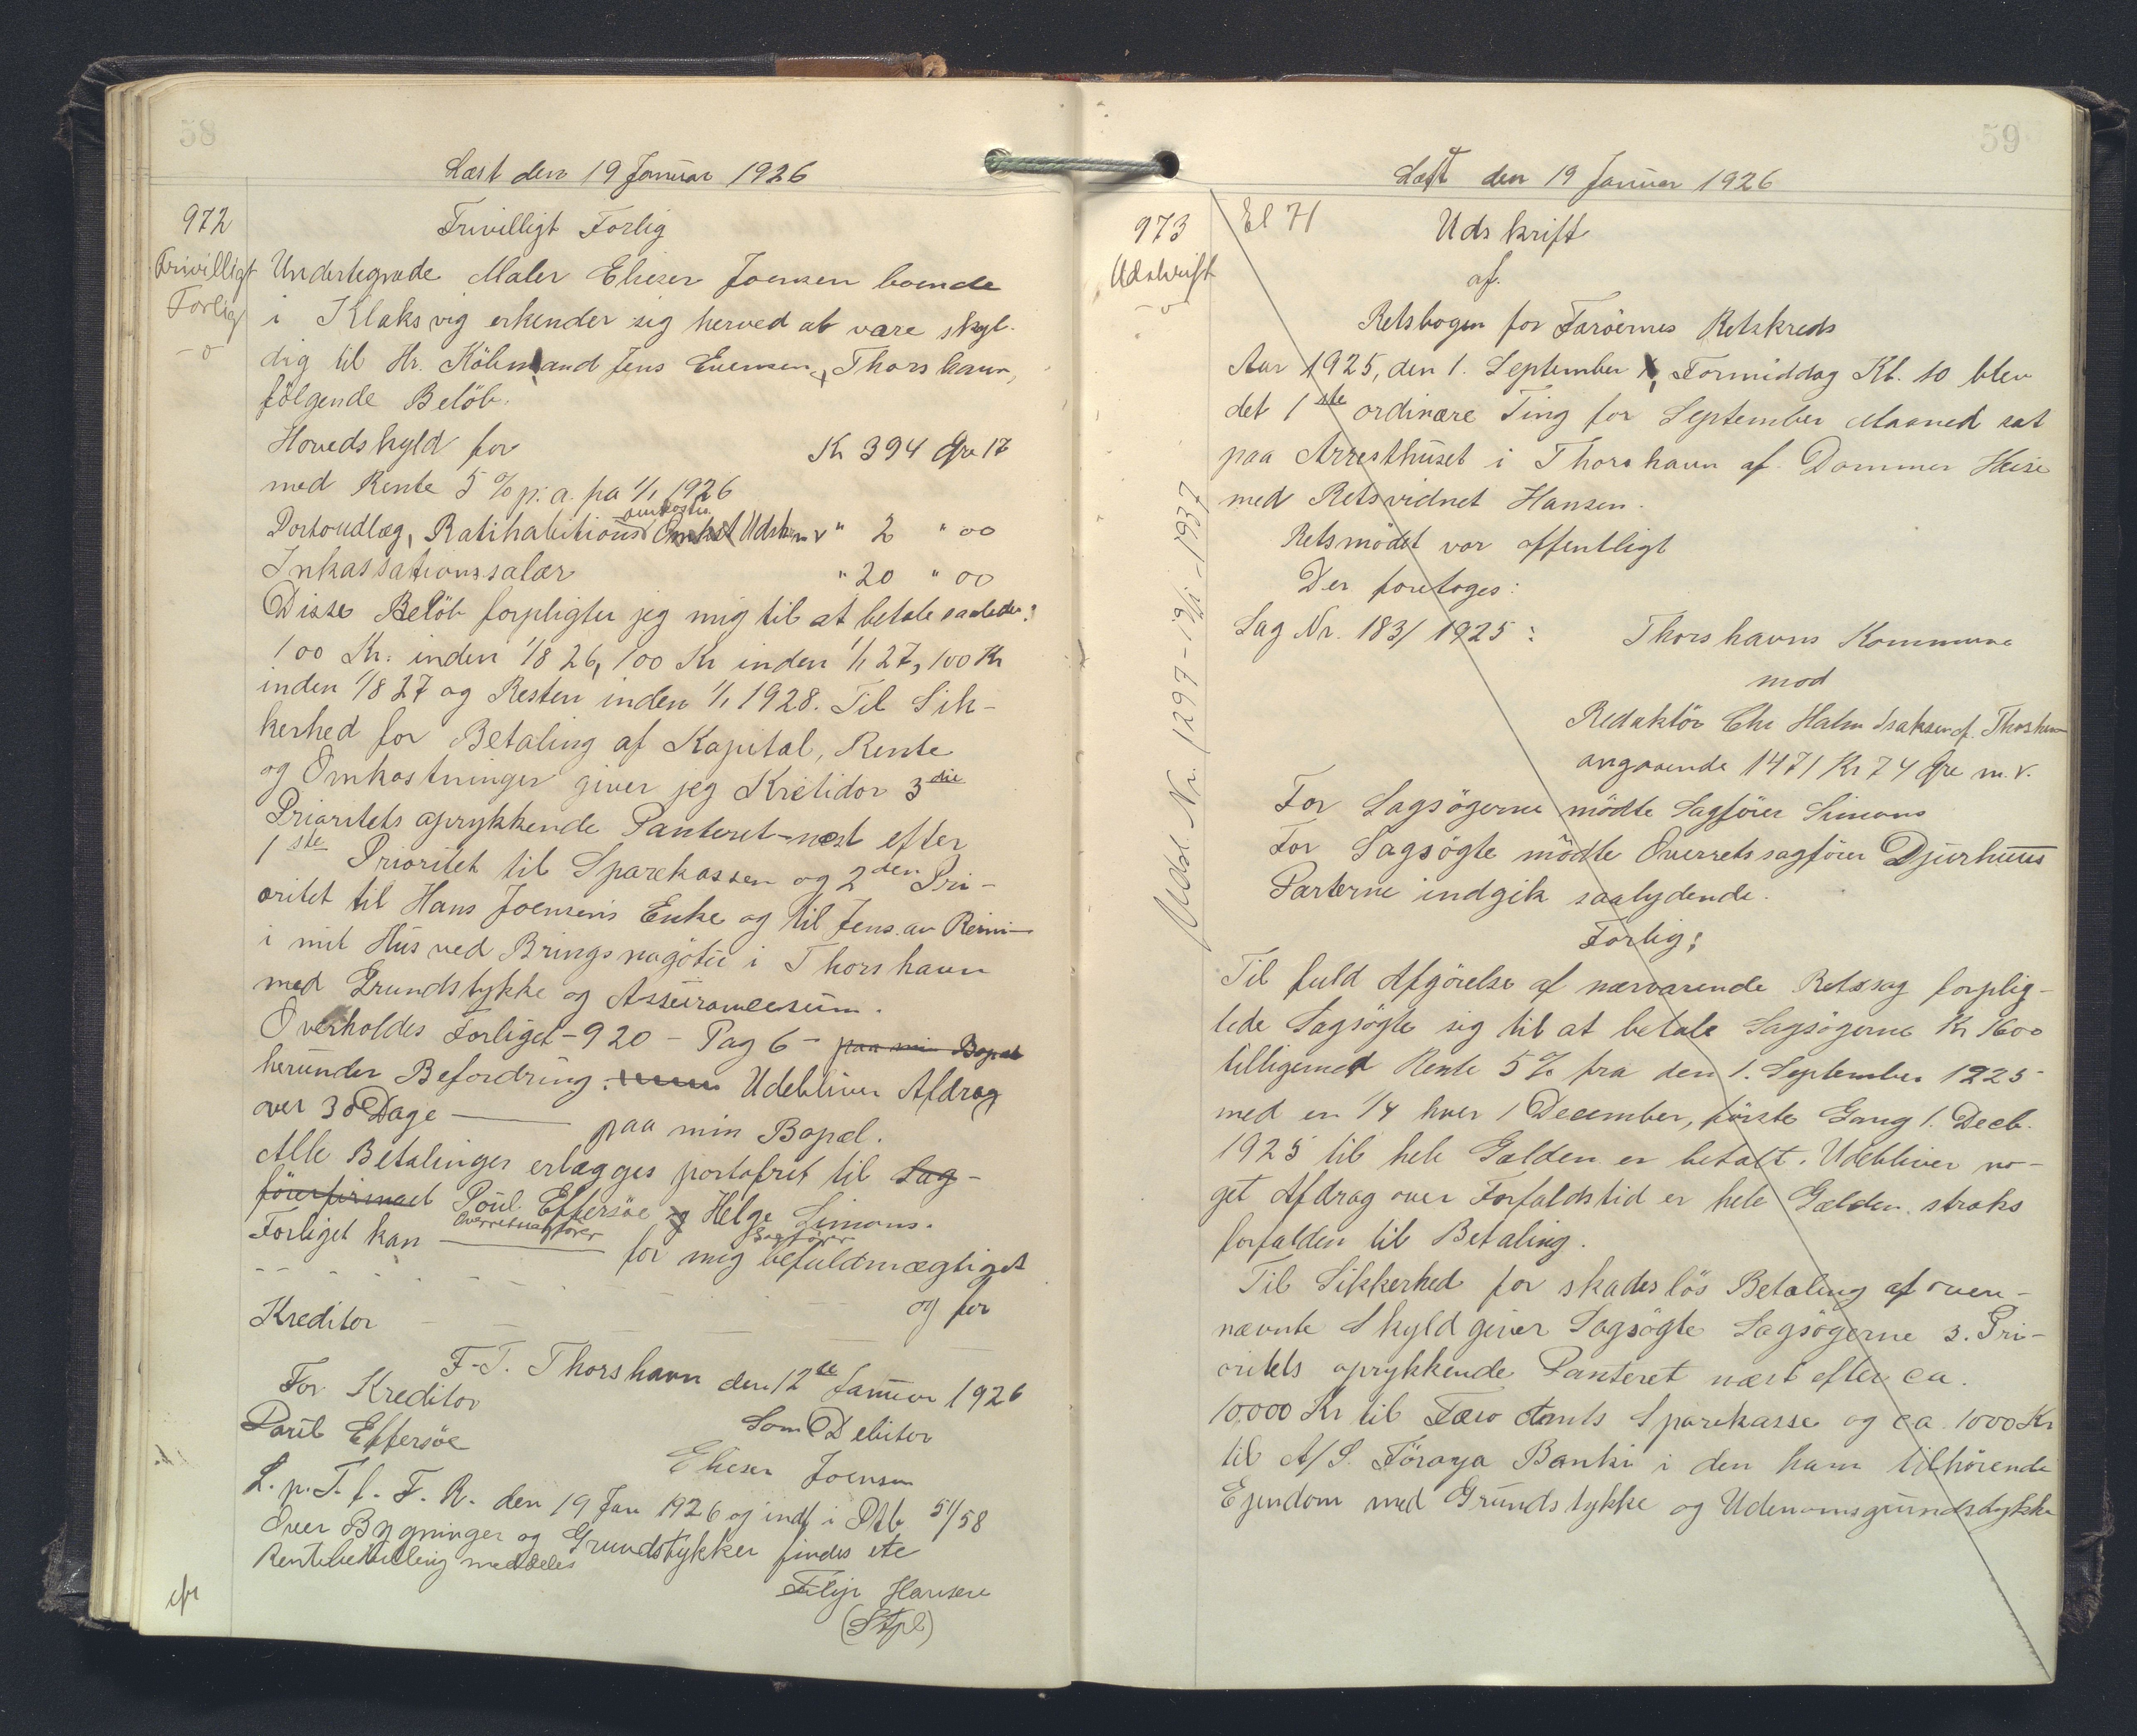 58
Læst den 19 Januar 1926
972
Frivilligt
Forlig
Frivilligt Forlig
Undertegnede Maler Elieser Joensen boende
i Klaksvig erkender sig herved at være skyl-
dig til Hr. Köbmand Jens Evensen, Thorshavn,
fölgende Belöb.
Hovedskyld for Kr 394 Øre 17
med Rente 5 % p. a. fra 1/1 1926
Portoudlæg, Ratihabitions Udskr m v " 2 " 00
Inkassationssalær " 20 " 00
Disse Belöb forpligter jeg mig til at betale saaledes:
100 Kr. inden 1/8 26, 100 Kr inden 1/1 27, 100 Kr
inden 1/8 27 og Resten inden 1/1 1928. Til Sik-
kerhed for Betaling af Kapital, Rente
og Omkostninger giver jeg Kreditor 3die
Prioritets oprykkende Panteret næst efter
1ste Prioritet til Sparekassen og 2den Pri-
oritet til Hans Joensens Enke og til Jens av Reini-
i mit Hus ved Bringsnagötu i Thorshavn
med Grundstykke og Assurancesum.
Overholdes Forliget - 920 - Pag 6 - paa min Bopæl
herunder Befordring. Udebliver Afdrag
over 30 Dage — paa min Bopæl.
Alle Betalinger erlægges portofrit til Sag-
förerfirmaet Poul Effersöe og Helge Simons.
Overretssagförer Sagförer
Forliget kan — for mig befuldmægtiget
og for
Kreditor
F.T. Thorshavn den 12te Januar 1926
For Kreditor Som Debitor
Poul Effersöe Elieser Joensen
L. p. T. f. F. R. den 19 Jan 1926 og indf i Ptb 51/58
Over Bygninger og Grundstykker findes ete
Rentebetaling meddeles
Filip Hansen
(Stpl)
59
Læst den 19 Januar 1926
973
Udskrift
El 71
Udskrift
af
Retsbogen for Færöernes Retskreds
Aar 1925, den 1. September, Formiddag Kl. 10 blev
det 1ste ordinære Ting for September Maaned sat
paa Arresthuset i Thorshavn af Dommer Heise
med Retsvidnet Hansen.
Retsmödet var offentligt
Der foretoges:
Sag Nr. 183/1925: Thorshavns Kommune
mod
Redaktör Chr Holm Isaksen af Thorshavn
angaaende 1471 Kr 74 Øre m. v.
For Sagsögerne mödte Sagförer Simons
For Sagsögte mödte Overretssagförer Djurhuus
Parterne indgik saalydende.
Forlig:
Til fuld Afgörelse af nærværende Retssag forplig-
tede Sagsögte sig til at betale Sagsögerne Kr 1600
tilligemed Rente 5% fra den 1. September 1925
med en 1/4 hver 1 December, förste Gang 1. Decb.
1925 til hele Gælden er betalt. Udebliver no-
get Afdrag over Forfaldstid er hele Gælden straks
forfalden til Betaling.
Til Sikkerhed for skadeslös Betaling af oven-
nævnte Skyld giver Sagsögte Sagsögerne 3. Pri-
oritets oprykkende Panteret næst efter ca.
10,000 Kr til Færö Amts Sparekasse og ca 1000 Kr
til A/S. Föroya Banki i den ham tilhörende
Ejendom med Grundstykke og Udenomsgrundstykke
Nr. 1297 - 19/1 - 1937